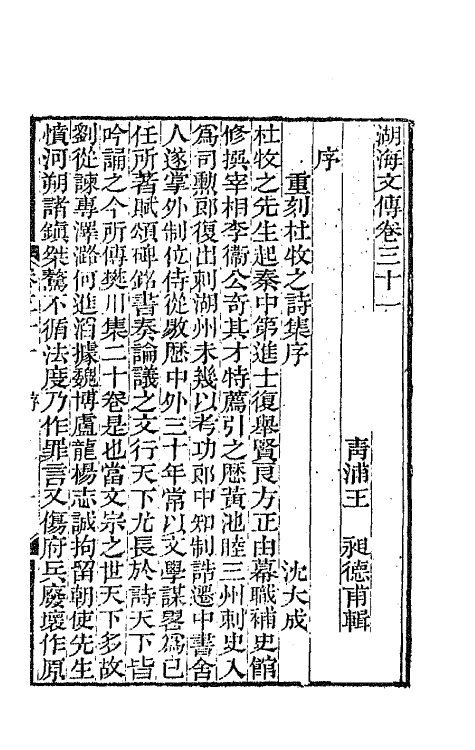 湖海文傳卷三十一
青浦王 昶德甫輯
序
重刻杜牧之詩集序 沈大成
杜牧之先生起秦中第進士復舉賢良方正由幕職補史館
修撰宰相李衞公奇其才特薦引之歷黃池睦三州刺史入
爲司勳郎復出刺湖州未幾以考功郎中知制誥遷中書舍
人遂掌外制位侍從敭歷中外三十年常以文學謀畧爲已
任所著賦頌碑銘書奏論議之文行天下尤長於詩天下皆
吟誦之今所傳樊川集二十卷是也當文宗之世天下多故
劉從諫專澤潞何進滔據魏博盧龍楊志誠拘留朝使先生
憤河朔諸鎮桀驁不循法度乃作罪言又傷府兵廢壞作原
卷三十一 序 一